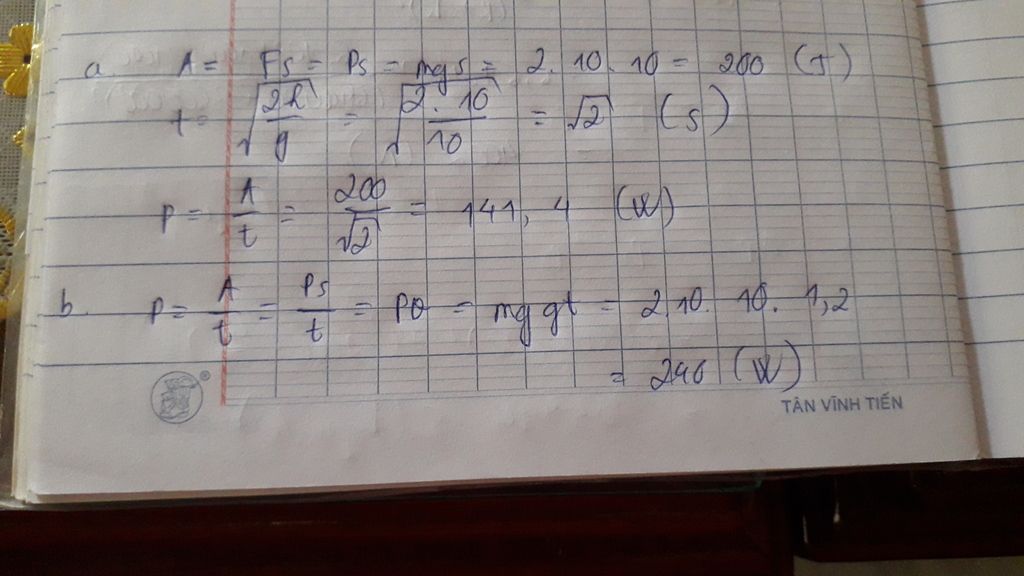 a. A = Fs = Ps = mgs = 2. 10. 10 = 200 (J)
t = √(2h/g) = √(2. 10/10) = √2 (s)
P = A/t = 200/√2 = 141, 4 (W)
b. P = A/t = Ps/t = Pv = mg gt = 2.10. 10. 1,2
= 240 (W)
TÂN VĨNH TIẾN